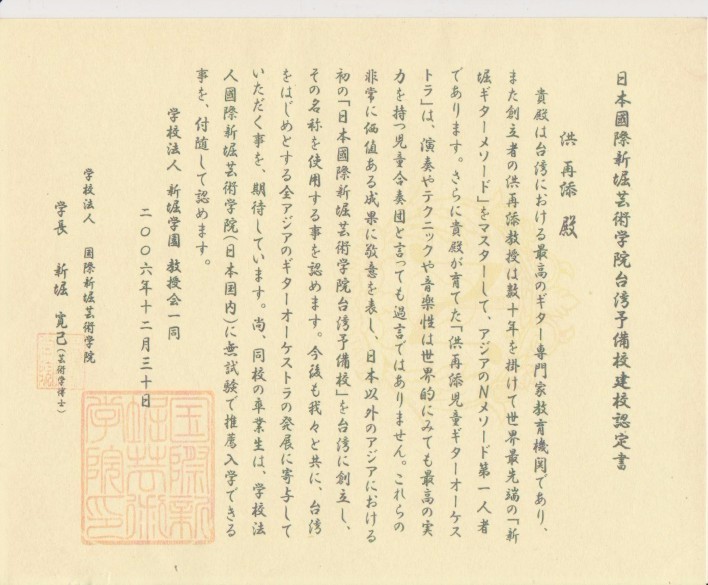 日本國際新堀芸術学院台湾予備校建校認定書
洪再添殿
貴殿は台湾における最高のギター専門家教育機関であり、
また創立者の洪再添教授は数十年を掛けて世界最先端の「新
堀ギターメソード」をマスターして、アジアのNメソード第一人者
であります。さらに貴殿が育てた「洪再添児童ギターオーケス
トラ」は、演奏やテクニックや音楽性は世界的にみても最高の実
力を持つ児童合奏団と言っても過言ではありません。これらの
非常に価値ある成果に敬意を表し、日本以外のアジアにおける
初の「日本國際新堀芸術学院台湾予備校」を台湾に創立し、
その名称を使用する事を認めます。今後も我々と共に、台湾
をはじめとする全アジアのギターオーケストラの発展に寄与して
いただく事を、期待しています。尚、同校の卒業生は、学校法
人國際新堀芸術学院(日本国内)に無試験で推薦入学できる
事を、付随して認めます。
学校法人 新堀学園 教授会一同
二〇〇六年十二月三十日
学校法人 國際新堀芸術学院
学長 新堀 寛己(芸術学博士)
国際新
堀芸術
学院印